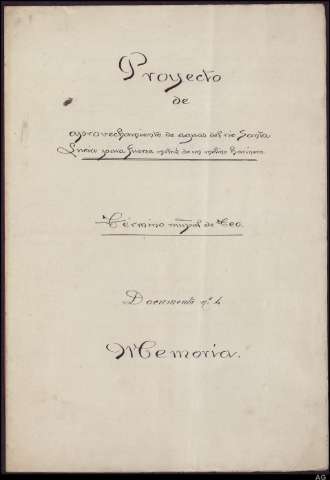 Proyecto
de
aprovechamiento de aguas del río Santa
Lucía para fuerza motriz de un molino harinero.
Término mpal de Teo.
Documento nº 1
Memoria.
AG